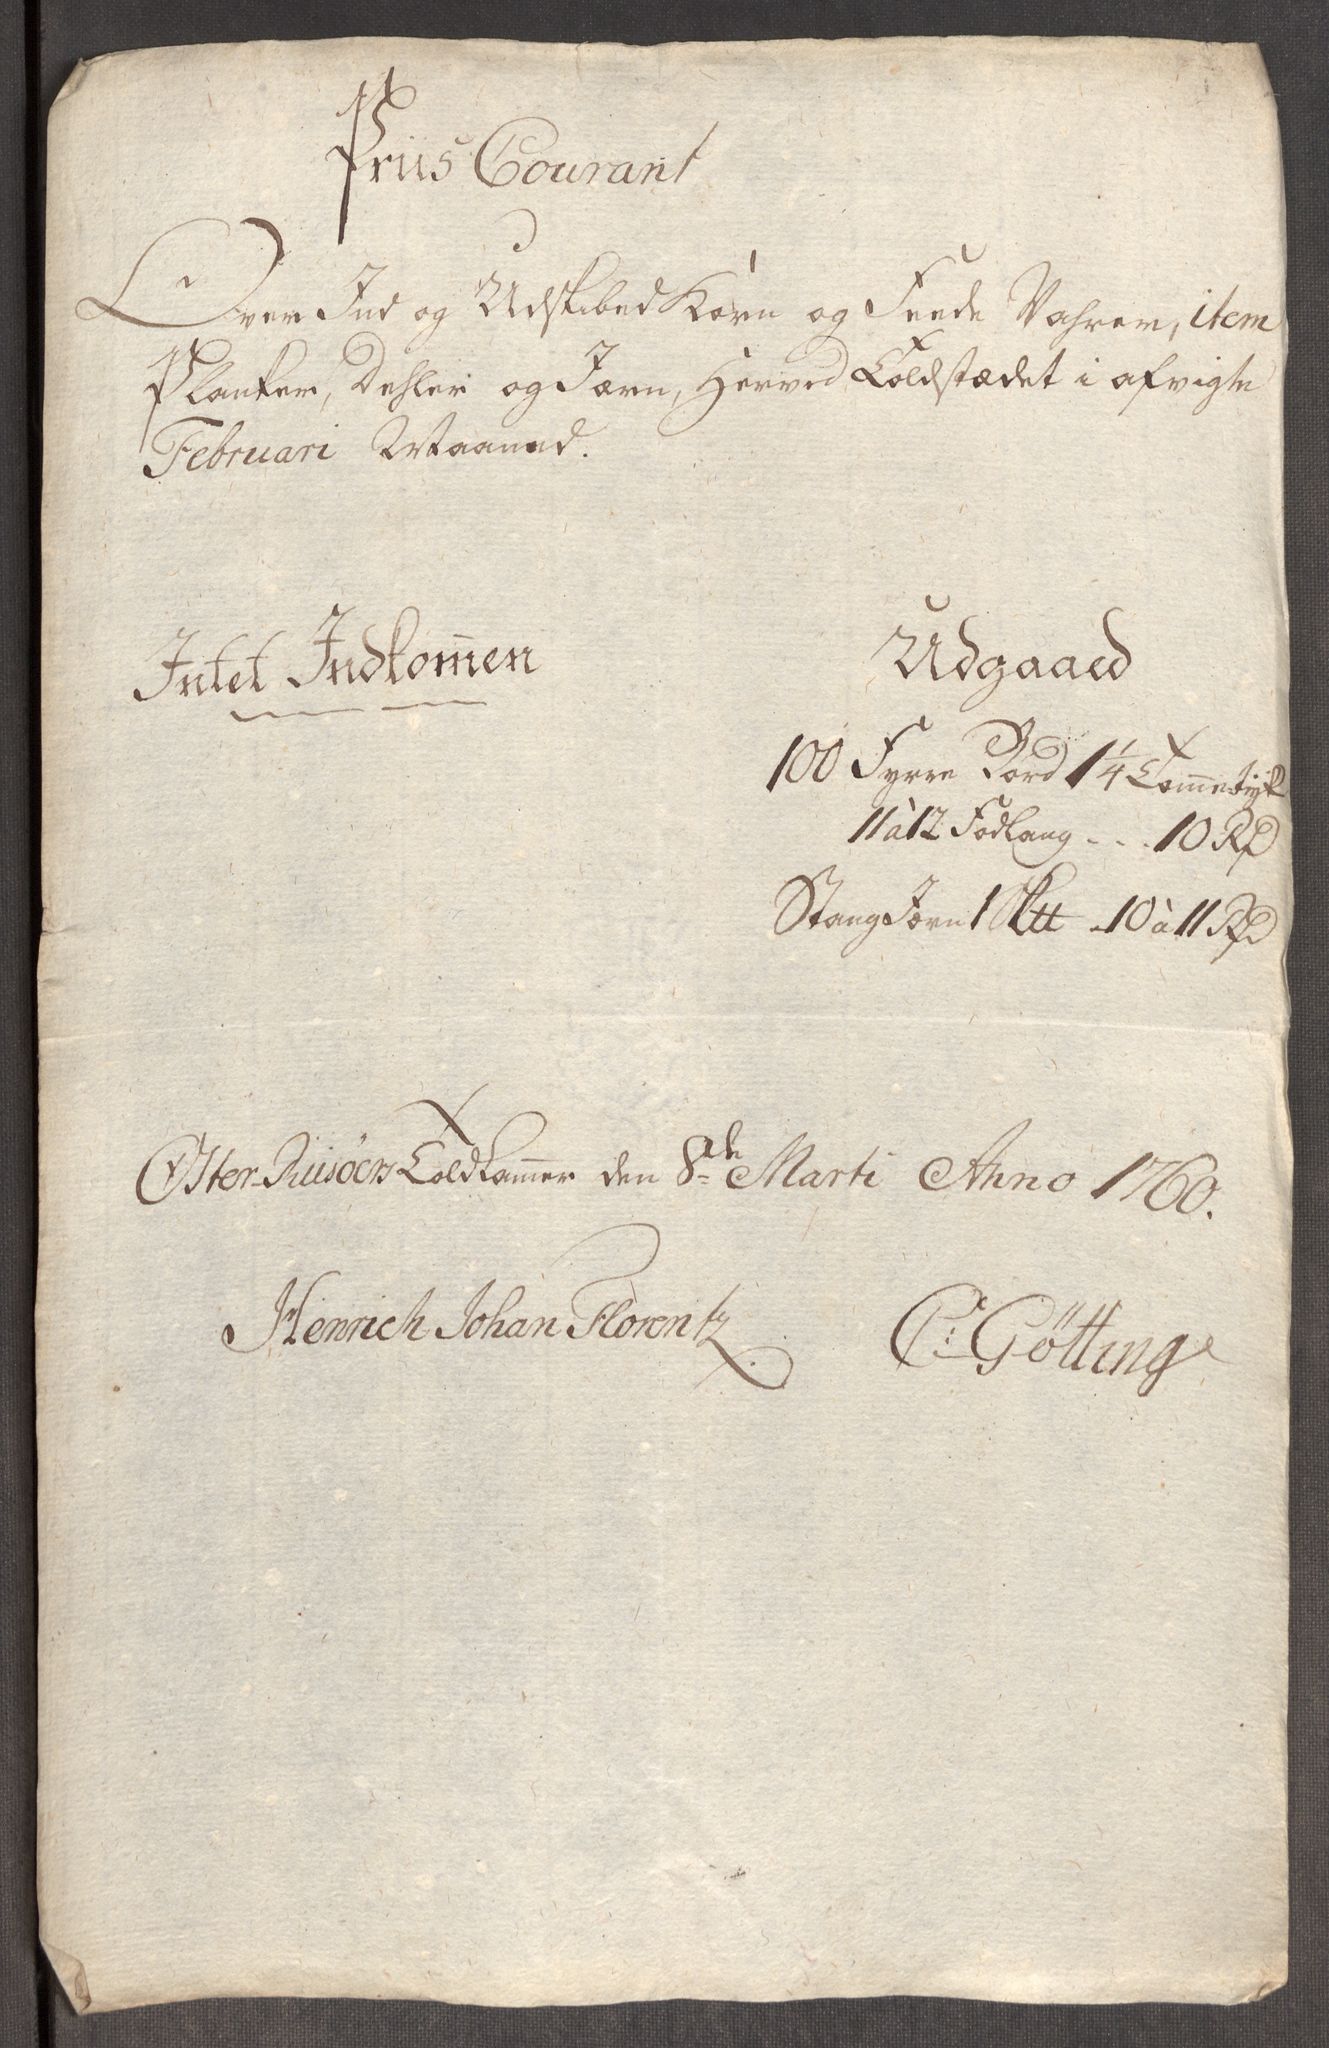 Priis Courant
Over Ind og Udskibed Korn og Feede Vahrer, item
Planker, Dehler og Jern, Herved Toldstædet i afvigte
Februari Maaned.
Intet Indkom̅en
Udgaaed
100 Fyrre Bord 1 1/4 Tom̅e tyk
11 à 12 Fod lang - . . 10 Rd
Stang Jern 1 Sk℔ . 10 à 11 Rd
Öster-Riisöers Toldkam̅er den 8de Marti Anno 1760.
Henrich Johan Florentz.
C: Götting